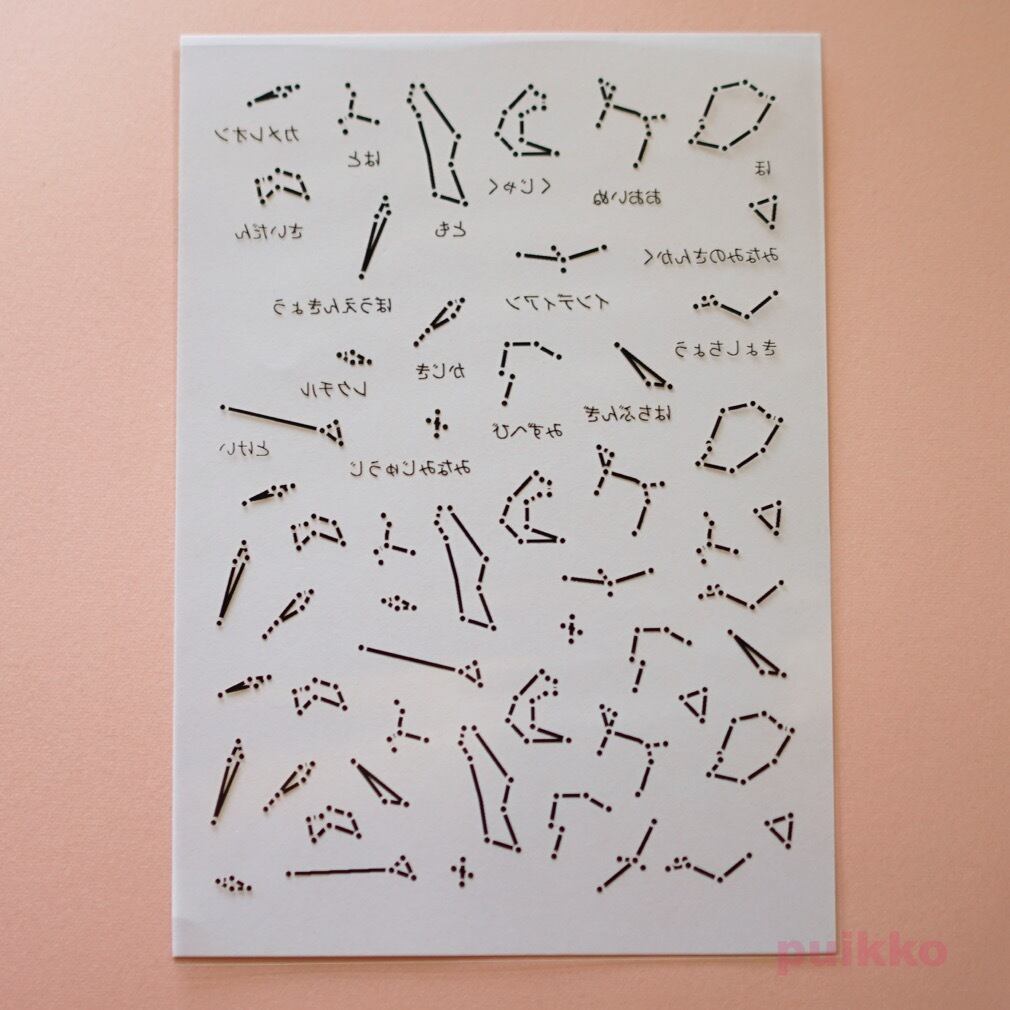 カメレオン
はと
くじゃく
おおいぬ
ほ
さいだん
とも
みなみのさんかく
ぼうえんきょう
インディアン
きょしちょう
かじき
レクチル
はちぶんぎ
みずへび
とけい
みなみじゅうじ
puikko